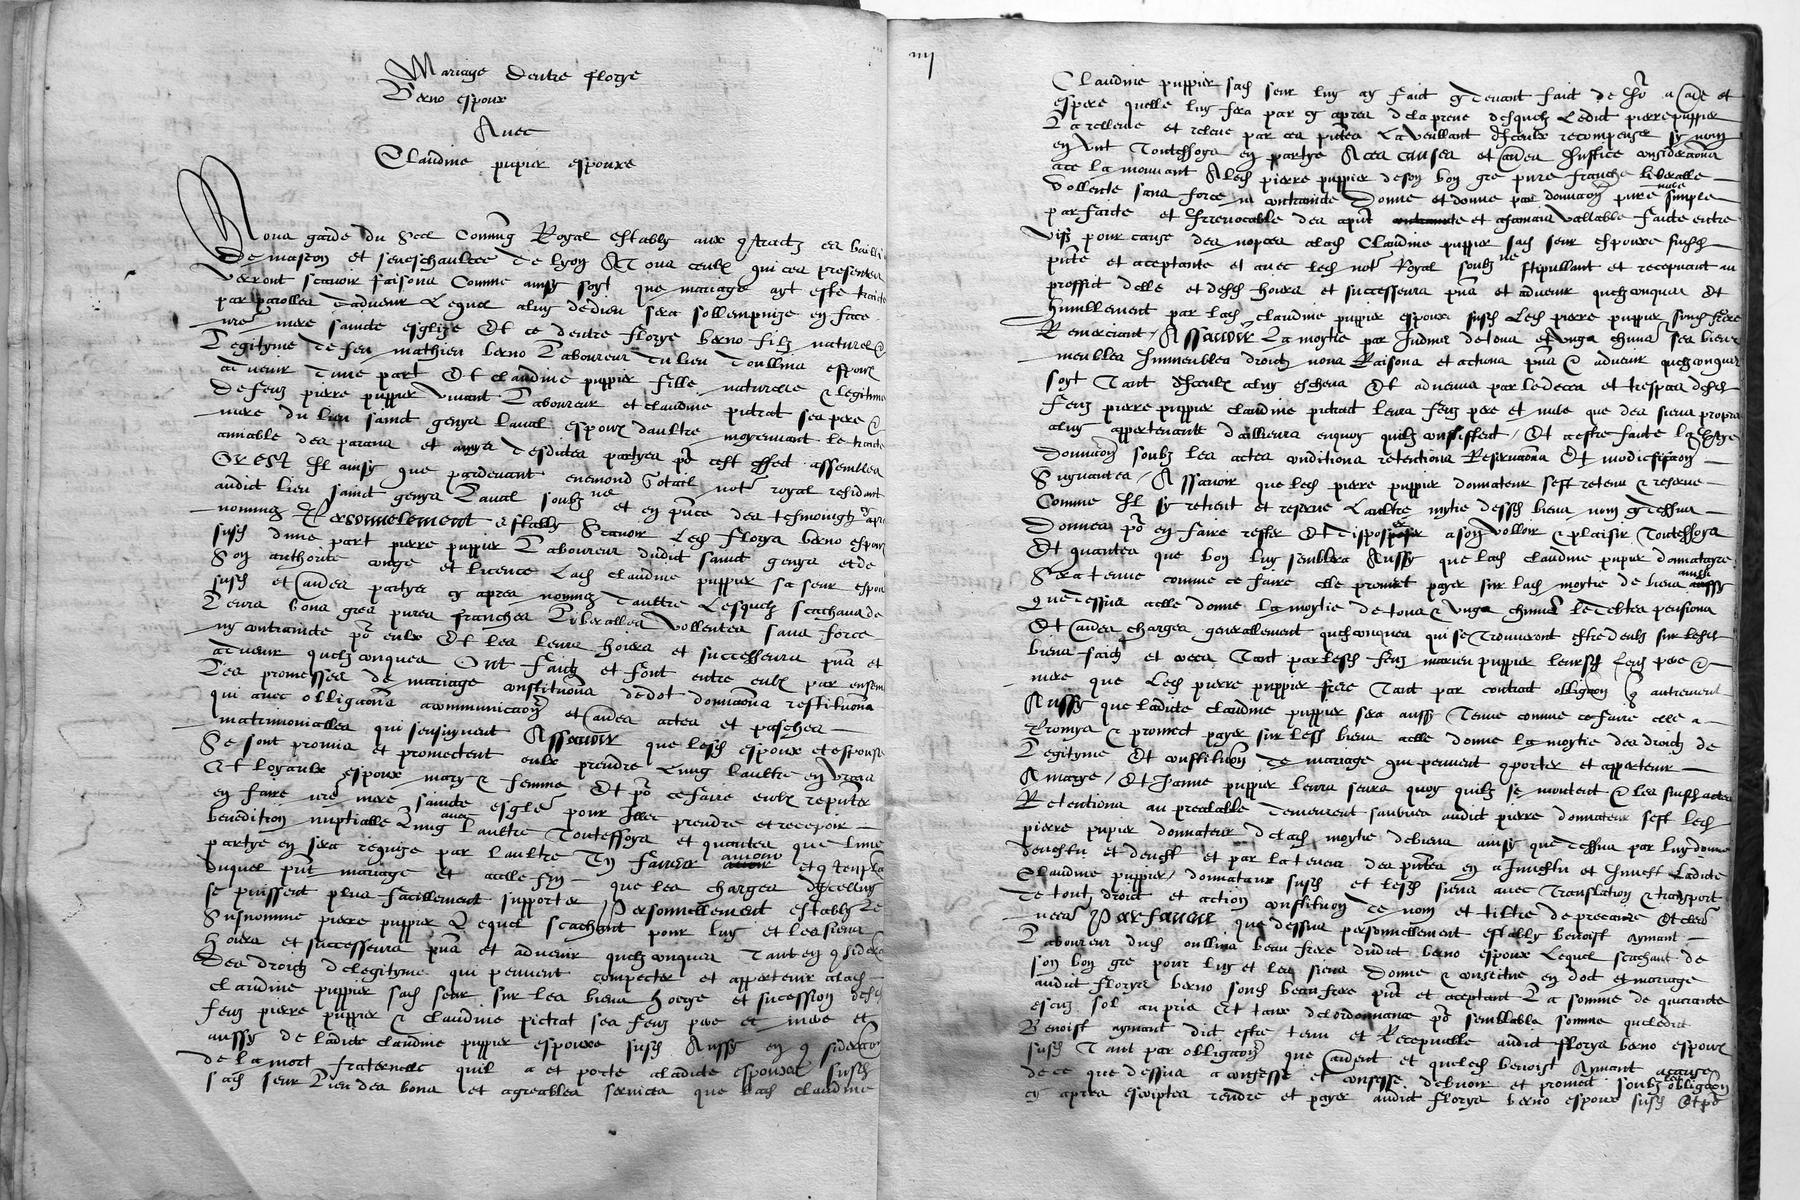 Mariage dentre florys
Berno espoux
Avec
Claudine pupier espouxe
Nous garde du Seel Commung Royal estably aux contractz es bailliage
de mascon et seneschaulcee de lyon A tous ceulx qui ces presentes
verront scavoir faisons Comme ainsy soyt que mariage ayt este traicte
par parolles dadvenir Lequel aluy de dieu sera sollempnize en face
nre mere saincte esglize Et ce dentre florys berno filz naturel &
Legityme de feu mathieu berno Laboureur du lieu doullins espoux
advenir dune part Et claudine puppier fille naturelle & legitime
de feuz pierre puppier vivant Laboureur et claudine pictrat ses pere &
mere du lieu sainct genys laval espouxe daultre moyennant le traicte
amiable des parans et amys desdites partyes po cest effect assembles
Or est Il ainsy que pardevant enemond notre royal residant
audict lieu sainct genys Laval soubz ne et en pnce des tesmoingtz cy apres
nommez Personnelement estably Scavoir Led florys berno espoux
susd dune part pierre puppier Laboureur dudict sainct genys et de
Son authorite conge et licence Lad claudine puppier sa seur espouxe
susd et partyes cy apres nommez daultre Lesquelz scachans de
Leurs bons gres pures franches Lyberalles vollentes sans force
ny contraincte po eulx Et les leurs hoirs et successeurs pns et
advenir quelzconques Ont faictz et font entre eulx par ensemble
Les promesses de mariage constitutions de dot donnaons restitutions
qui avec obligaons acommunicaon et autres actes et pasches
matrimonialles qui sensuyvent Assavoir que lesd espoux et espouse
Se sont promis et promectent eulx prendre Lung laultre en vrays
Et loyaulx espoux mary & femme Et po ce faire eulx reputer
en faire nre mere saincte esglise pour Illec prendre et recepvoir
benedition nuptialle Lung avec laultre Touteffoys et quantes que lune
partye en sera requize par laultre En faveur amour et contempla
duquel pnt mariage et acelle fin que les charges dicelluy
se puissent plus facillement supporter Personnellement estably Le
Susnomme pierre puppier Lequel scachant pour luy et les siens
hoirs et successeurs pns et advenir quelzconques Tant en considera
des droictz delegityme qui peuvent compecter et appertenir alad
claudine puppier sad seur sur les biens hoirye et sucession desd
feuz pierre puppier & claudine pictrat ses feuz pere et mere et
aussy de ladicte claudine puppier espouxe susd Aussy en considera
de lamort fraternelle quil a et porte aladicte espouxe susd
sad seur Lieu des bons et agreables services que lad claudine
iiij
Claudine puppier sad seur luy ay faict cy devant faict de et
espere quelle luy fera par cy apres dela preuve desquelz ledict pierre puppier
La rellevee et releve par ces pntes La veullant dIceulx recompenser sy non
en tout Touteffoys en partye A ces causes et autres Justice consideraons
ace la mouvant Aled pierre puppier de son bon gre pure franche liberalle
vollente sans force ne contraincte Donne et donne par donnaon pure simple
parfaicte et Irrevocable des apnt et ajamais vallable faicte entre
vifz pour cause des nopces alad Claudine puppier sad seur espouxe susd
pnte et aceptante et avec led notr Royal soubz ne stipullant et recepvant au
proffict delle et desd hoirs et successeurs pns et advenir quelzconques Et
humllement par lad claudine puppier espouxe susd Led pierre puppier sond frere
Remerciant / Assavoir La moytie par Indivis de tous et ungs chuns ses biens
meubles Immeubles droictz noms Raisons et actions pns & advenir quelzconques
soyt Tant dIceulx aluy escheus Et advenus par le deces et trespas desd
feuz pierre puppier claudine pictrat leurs feuz pere et mere que des siens propres
aluy appertenante dailleurs enquoy quilz consistent / Et acestre faicte lad
donnaon soubz les actes conditions retentions Reservaons Et modiffificaons
Suyvantes / Assavoir que led pierre puppier donnateur sest retenu & reserve
Comme Il sy retient et reserve Laultre mytie desesd biens non cy dessus
donnes po en faire rester Et disposer a son volloir & plaisir Touteffoys
Et quantes que bon luy semblera Aussy que lad claudine pupier donnatayre
Sera tenue comme ce faire elle promet payer sur lad moytie de biens ainsi
que dessus a elle donne la moytie de tous & ungs chunes le debtes pensions
Et autres charges generallement quelzconques qui se trouveront estre deubz sur lesd
biens faictz et crees Tant par lesd feuz mariez puppier leursd feuz pere &
mere que Led pierre puppier frere Tant par contract obligaon autrement
Aussy que ladicte claudine puppier sera aussy Tenue comme ce faire elle a
Promys & promect payer sur lesd biens a elle donne la moytie des droictz de
Legityme Et constitution de mariage qui peuvent compter et appertenir
A marye / Et Janne puppier leurs seurs quoy quilz se montent & les susd actes
Retentions au prealable demeurent sauvees audict pierre donnateur sest led
pierre pupier donnateur delad moytie de biens ainsy que dessus par luy donne
devestu et devest et par la teneur des pntes en a Investu et Invest Ladicte
Claudine puppier / donnataire susd et lesd siens avec translation & transport
de tout droict et action constitution de nom et tiltre de precaire et clers
necr Par faveur que dessus personnellement estably benoist aymant
Laboureur dud oullins beau frere dudict berno espoux Lequel scachant de
son bon gre pour luy et les siens Donne & constitue en dot et mariage
audict florys berno sond beau frere pnt et aceptant La somme de quarante
escuz sol au pris Et taux del ordonnance po semblable somme queledit
Benoist aymant dit estre tenu et Recepvable audict florys berno espoux
susd Tant par obligaon que et queled benoist Aymant acause
de ce que dessus a confesse et confesse debvoir et promect soubz les obligaon
cy apres escriptes rendre et payer audict florys berno espoux susd Et po